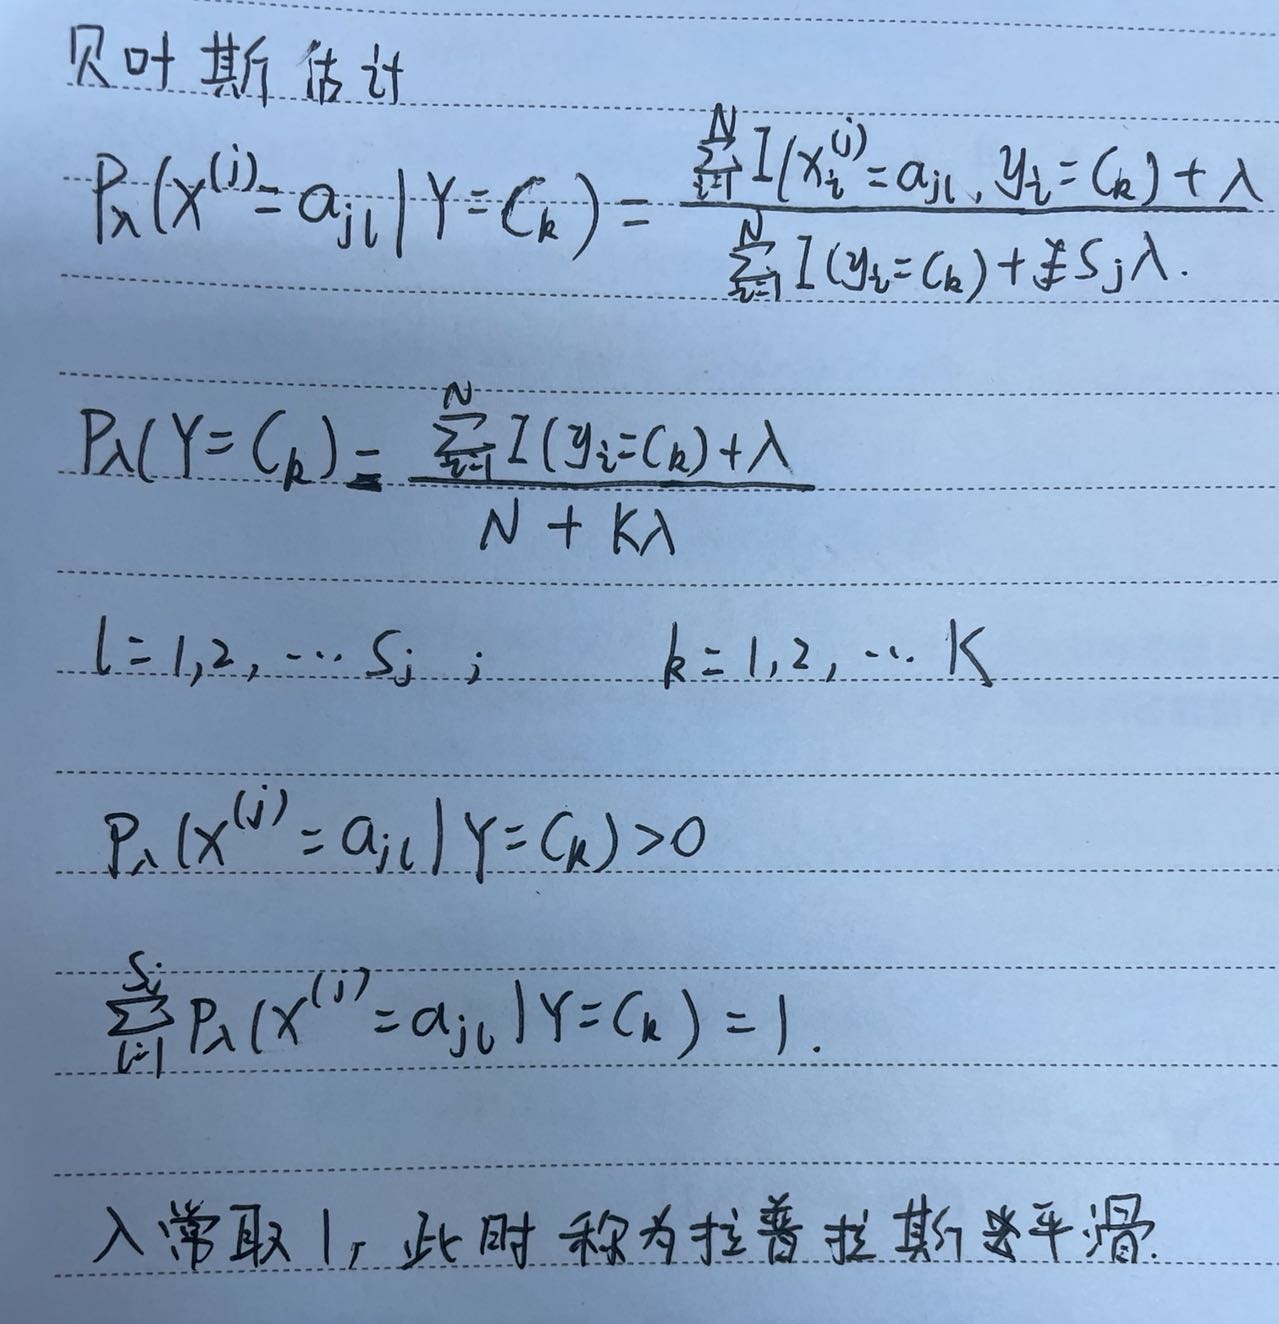 贝叶斯估计
Pλ(X^(j)=a_jl|Y=C_k) = (∑_{i=1}^{N} I(x_i^(j)=a_jl、y_i=C_k)+λ) / (∑_{i=1}^{N} I(y_i=C_k)+S_jλ.)
Pλ(Y=C_k) = (∑_{i=1}^{N} I(y_i=C_k)+λ) / (N+Kλ)
l=1,2,…S_j ; k=1,2,…K
Pλ(X^(j)=a_jl|Y=C_k)>0
∑_{l=1}^{S_j} Pλ(X^(j)=a_jl|Y=C_k)=1.
λ常取1,此时称为拉普拉斯平滑.